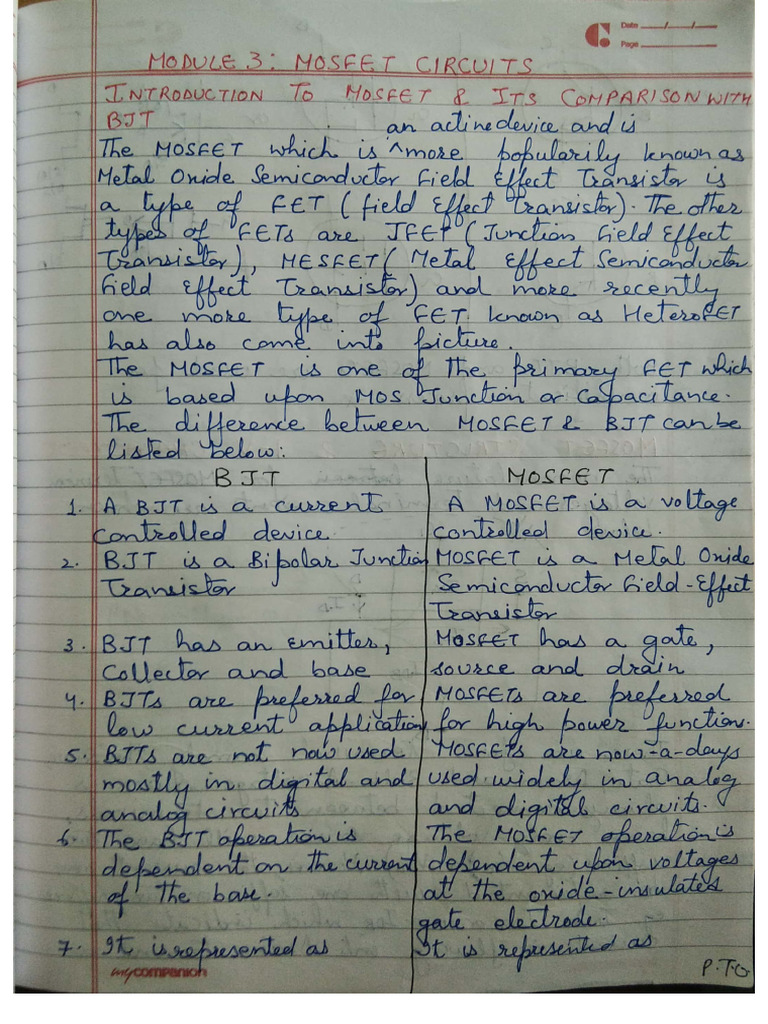 Date
Page
MODULE 3: MOSFET CIRCUITS
INTRODUCTION TO MOSFET & ITS COMPARISON WITH
BJT
an active device and is
The MOSFET which is ^more popularily known as
Metal Oxide Semiconductor Field Effect Transistor is
a type of FET (Field Effect Transistor). The other
types of FETs are JFET (Junction Field Effect
Transistor), MESFET (Metal Effect Semiconductor
Field Effect Transistor) and more recently
one more type of FET known as HeteroFET
has also come into picture.
The MOSFET is one of the primary FET which
is based upon MOS Junction or Capacitance.
The difference between MOSFET & BJT can be
listed below:
BJT MOSFET
1. A BJT is a current A MOSFET is a voltage
controlled device. controlled device.
2. BJT is a Bipolar Junction MOSFET is a Metal Oxide
Transistor Semiconductor Field-Effect
Transistor
3. BJT has an emitter, MOSFET has a gate,
collector and base source and drain
4. BJTs are preferred for MOSFETs are preferred
low current application for high power function.
5. BJTs are not now used MOSFETs are now-a-days
mostly in digital and used widely in analog
analog circuits and digital circuits.
6. The BJT operation is The MOSFET operation is
dependent on the current dependent upon voltages
of the base. at the oxide-insulated
gate electrode.
7. It is represented as It is represented as
mycompanion P.T.O